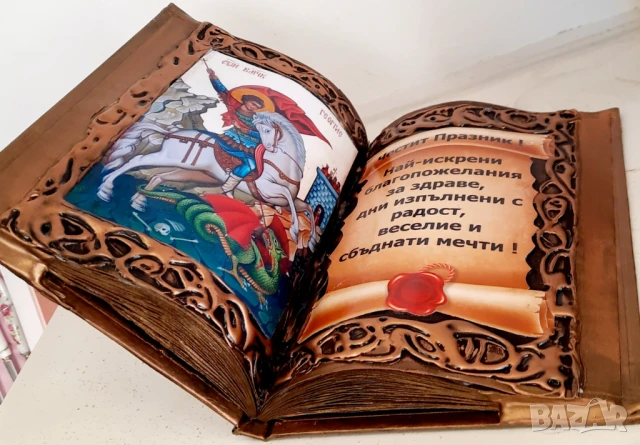 Честит Празник !
Най-искрени
благопожелания
за здраве,
дни изпълнени с
радост,
веселие и
сбъднати мечти !
BAZAR